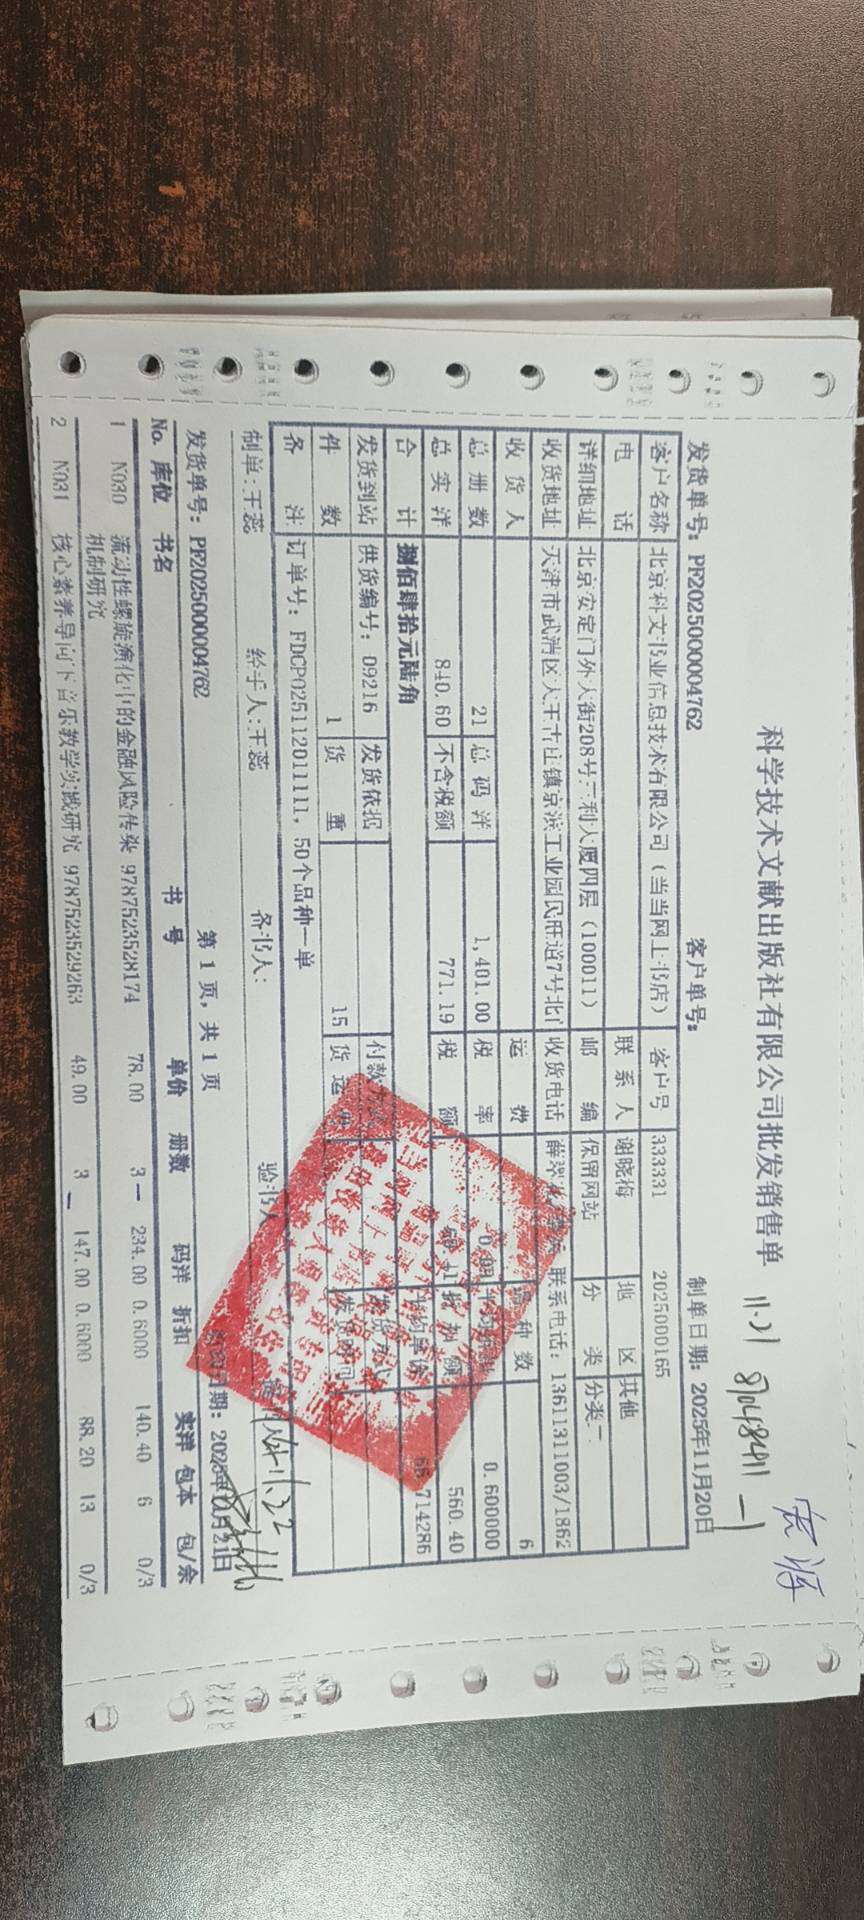 科学技术文献出版社有限公司批发销售单
11.21
发货单号：PF2025000004762 客户单号： 制单日期：2025年11月20日
客户名称 北京科文书业信息技术有限公司（当当网上书店） 客户号 333331 2025000165
电话 联系人 谢晓梅 地区 其他
详细地址 北京安定门外大街208号三利大厦四层（100011） 邮编 保留网站 分类 分类二
收货地址 天津市武清区大王古庄镇京滨工业园民旺道7号北门 收货电话 联系电话：13611311003/1862
收货人 运费 品种数 6
总册数 21 总码洋 1,401.00 税率 0.600000
总实洋 840.60 不含税额 771.19 税额 560.40
合计 捌佰肆拾元陆角 66.714286
发货到站 供货编号：09216 发货依据
件数 1 货重 15
备注 订单号：FDCP025112011111，50个品种一单
制单：王蕊 经手人：王蕊 备书人： 验书人
发货单号：PF2025000004762 第 1 页，共 1 页 日期：2025年11月21日
No. 库位 书名 书号 单价 册数 码洋 折扣 实洋 包本 包/余
1 N030 流动性螺旋演化中的金融风险传染 9787523528174 78.00 3 234.00 0.6000 140.40 6 0/3
机制研究
2 N031 核心素养导向下音乐教学实践研究 9787523529263 49.00 3 147.00 0.6000 88.20 13 0/3